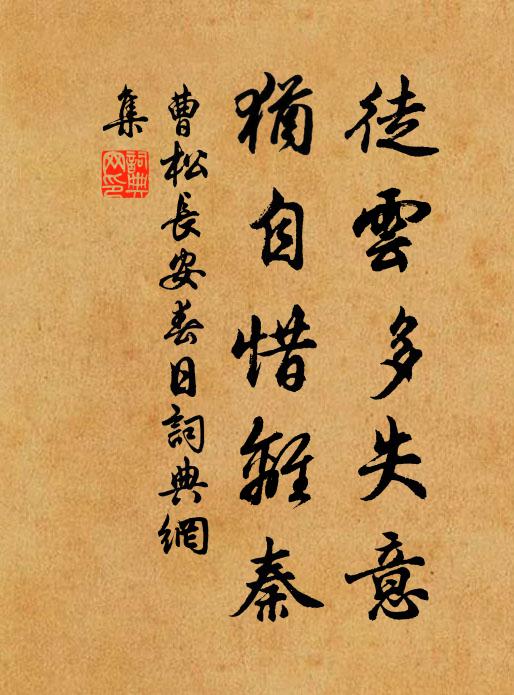 徒雲多失意
猶自惜離秦
曹松長安春日詞典網
集
詞典網印